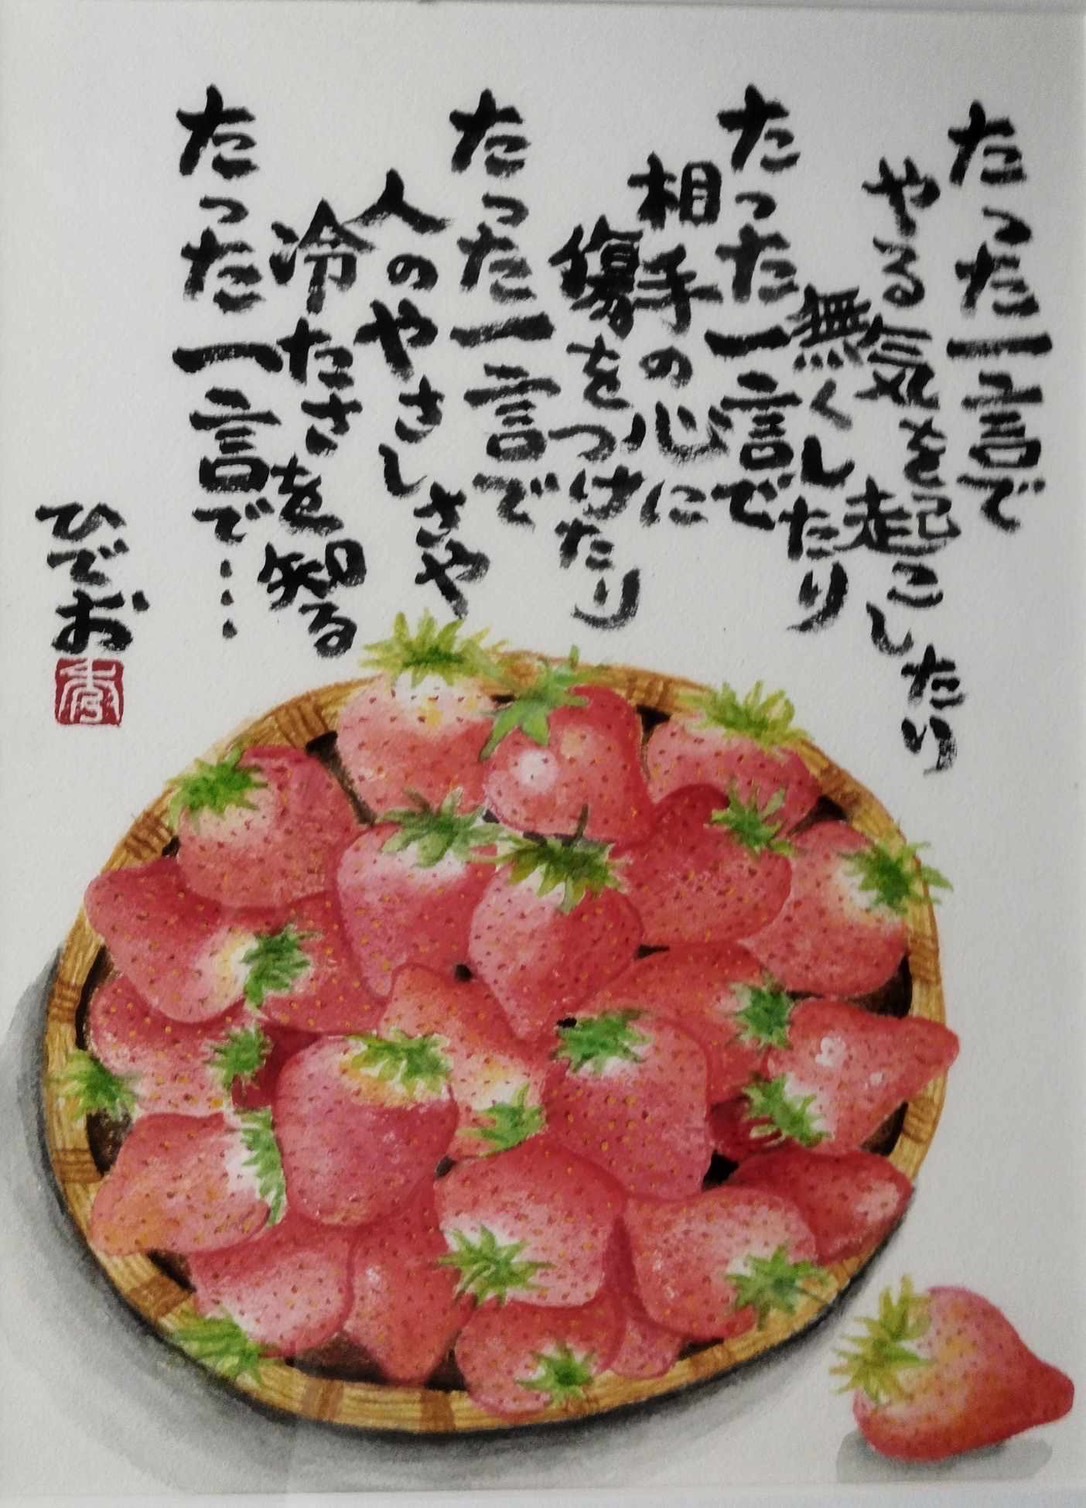 たった一言で
やる気を起こしたり
無くしたり
たった一言で
相手の心に
傷をつけたり
たった一言で
人のやさしさや
冷たさを知る
たった一言で…
ひでお
秀